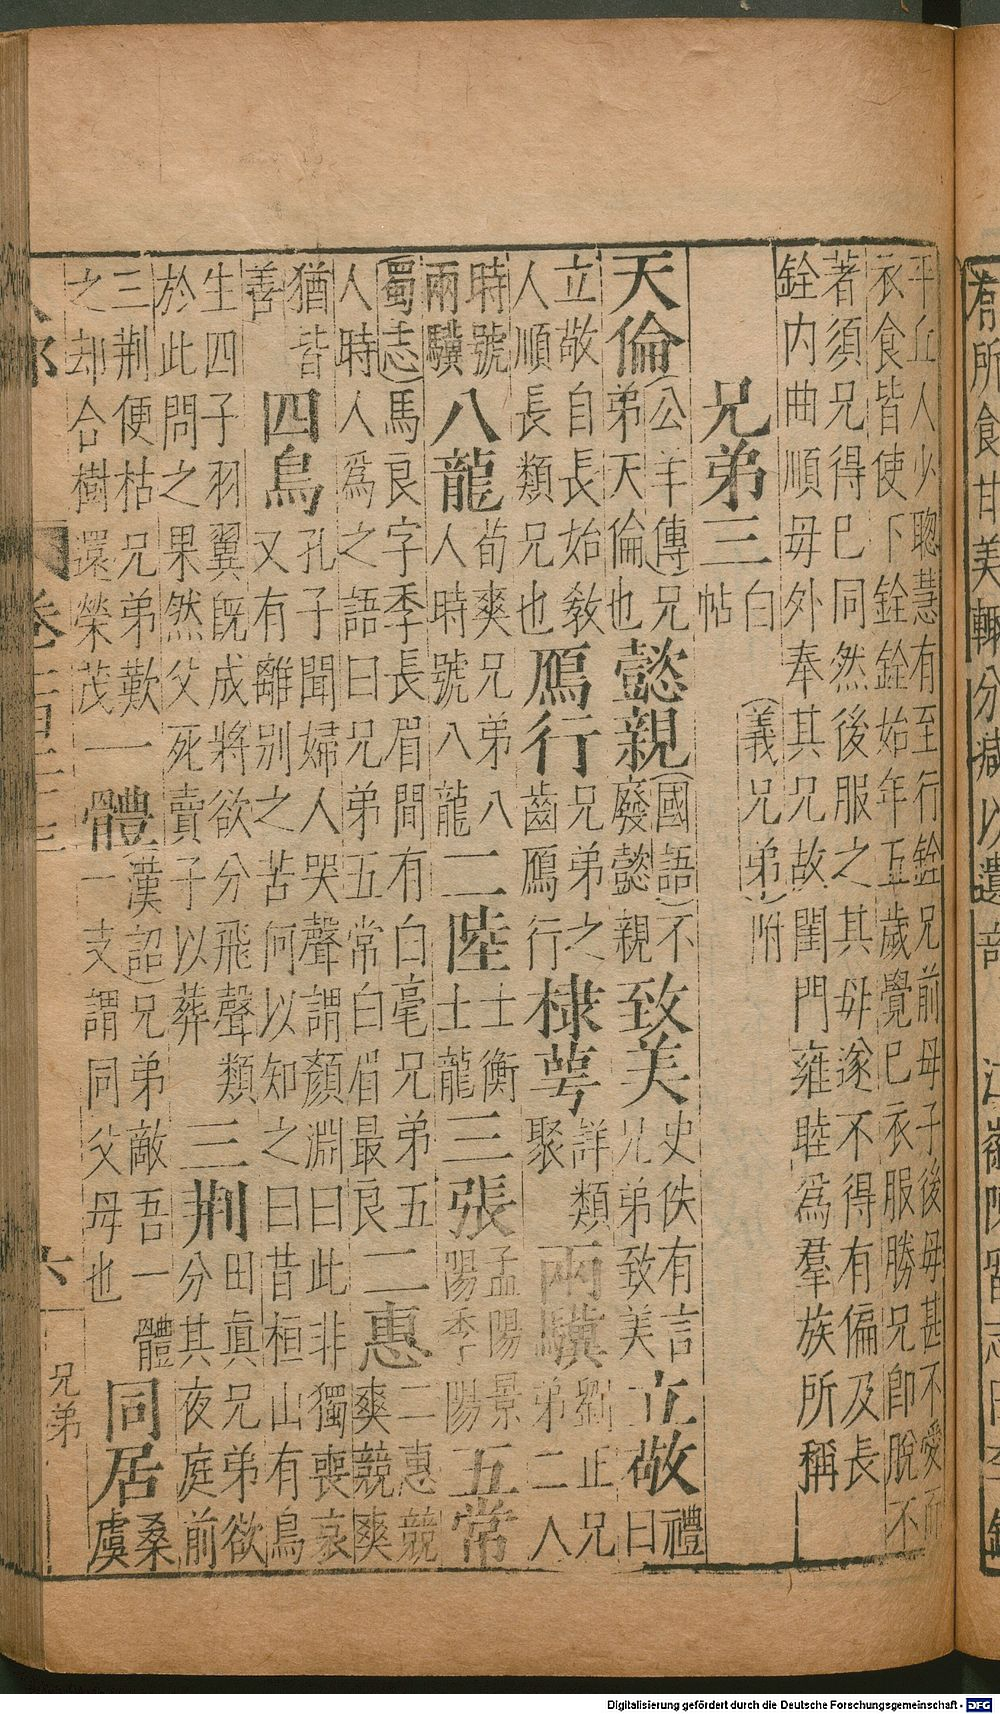 平丘人少聰慧有至行銓兄前母子後母甚不愛而
衣食皆使下銓銓始年五歲覺已衣服勝兄即脫不
著須兄得巳同然後服之其母遂不得有偏及長
銓内曲順毋外奉其兄故閨門雍睦爲羣族所稱
兄弟三
白
帖
(義兄弟)附
天倫
(公羊傳)兄
弟天倫也
懿親
(國語)不
廢懿親
致美
史佚有言
兄弟致美
立敬
禮
曰
立敬自長始敎
人順長類兄也
鴈行
兄弟之
齒鴈行
棣萼
詳類
聚
兩驥
劉正兄
弟二人
時號
兩驥
八龍
荀爽兄弟八
人時號八龍
二陸
士衡
士龍
三張
孟陽景
陽季陽
五常
(蜀志)馬良字季長眉間有白毫兄弟五
人時人爲之語曰兄弟五常白眉最良
二惠
二惠競
爽競爽
猶昔
善
四鳥
孔子聞婦人哭聲謂顏淵曰此非獨喪哀
又有離别之苦何以知之曰昔桓山有鳥
生四子羽翼旣成將欲分飛聲類
於此問之果然父死賣子以葬
三荆
田眞兄弟欲
分其夜庭前
三荆便枯兄弟歎
之却合樹還榮茂
一體
(漢詔)兄弟敵吾一體
一支謂同父母也
同居
桑
虞
卷
六
兄弟
君所食甘美輒分減以遺
Digitalisierung gefördert durch die Deutsche Forschungsgemeinschaft - DFG